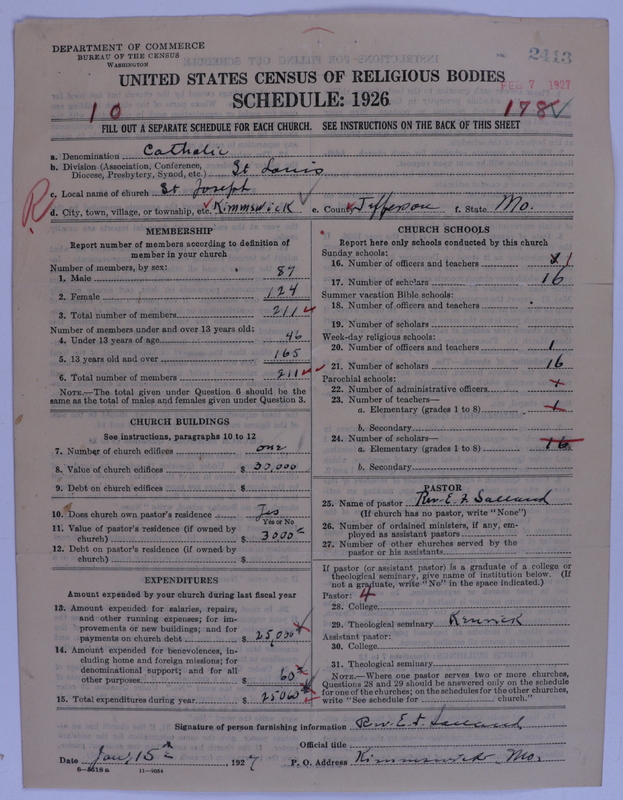 DEPARTMENT OF COMMERCE
BUREAU OF THE CENSUS
WASHINGTON
2413
UNITED STATES CENSUS OF RELIGIOUS BODIES
FEB 7 1927
SCHEDULE: 1926
10
178
FILL OUT A SEPARATE SCHEDULE FOR EACH CHURCH. SEE INSTRUCTIONS ON THE BACK OF THIS SHEET
a. Denomination Catholic
b. Division (Association, Conference, Diocese, Presbytery, Synod, etc.) St Louis
c. Local name of church St Joseph
R
d. City, town, village, or township, etc. Kimmswick e. County Jefferson f. State Mo.
MEMBERSHIP
Report number of members according to definition of
member in your church
Number of members, by sex:
1. Male 87
2. Female 124
3. Total number of members 211
Number of members under and over 13 years old:
4. Under 13 years of age 46
5. 13 years old and over 165
6. Total number of members 211
NOTE.—The total given under Question 6 should be
same as the total of males and females given under Question 3.
CHURCH BUILDINGS
See instructions, paragraphs 10 to 12
7. Number of church edifices one
8. Value of church edifices $ 30,000
9. Debt on church edifices $
10. Does church own pastor's residence Yes
Yes or No
11. Value of pastor's residence (if owned by
church) $ 3000
12. Debt on pastor's residence (if owned by
church) $
EXPENDITURES
Amount expended by your church during last fiscal year
13. Amount expended for salaries, repairs,
and other running expenses; for im-
provements or new buildings; and for
payments on church debt $ 25,000
14. Amount expended for benevolences, in-
cluding home and foreign missions; for
denominational support; and for all
other purposes $ 60
15. Total expenditures during year $ 25060
CHURCH SCHOOLS
Report here only schools conducted by this church
Sunday schools:
16. Number of officers and teachers 1
17. Number of scholars 16
Summer vacation Bible schools:
18. Number of officers and teachers
19. Number of scholars
Week-day religious schools:
20. Number of officers and teachers 1
21. Number of scholars 16
Parochial schools:
22. Number of administrative officers 1
23. Number of teachers—
a. Elementary (grades 1 to 8) 1
b. Secondary
24. Number of scholars—
a. Elementary (grades 1 to 8) 16
b. Secondary
PASTOR
25. Name of pastor Rev. E. F.
(If church has no pastor, write "None")
26. Number of ordained ministers, if any, em-
ployed as assistant pastors
27. Number of other churches served by the
pastor or his assistants
If pastor (or assistant pastor) is a graduate of a college or
theological seminary, give name of institution below. (If
not a graduate, write "No" in the space indicated.)
Pastor: 4
28. College
29. Theological seminary Kenrick
Assistant pastor:
30. College
31. Theological seminary
NOTE.—Where one pastor serves two or more churches,
Questions 28 and 29 should be answered only on the schedule
for one of the churches; on the schedules for the other churches,
write "See schedule for church."
Signature of person furnishing information Rev. E. F.
Official title
Date Jan. 15th, 1927 P. O. Address Kimmswick Mo.
6—5618a 11—9054